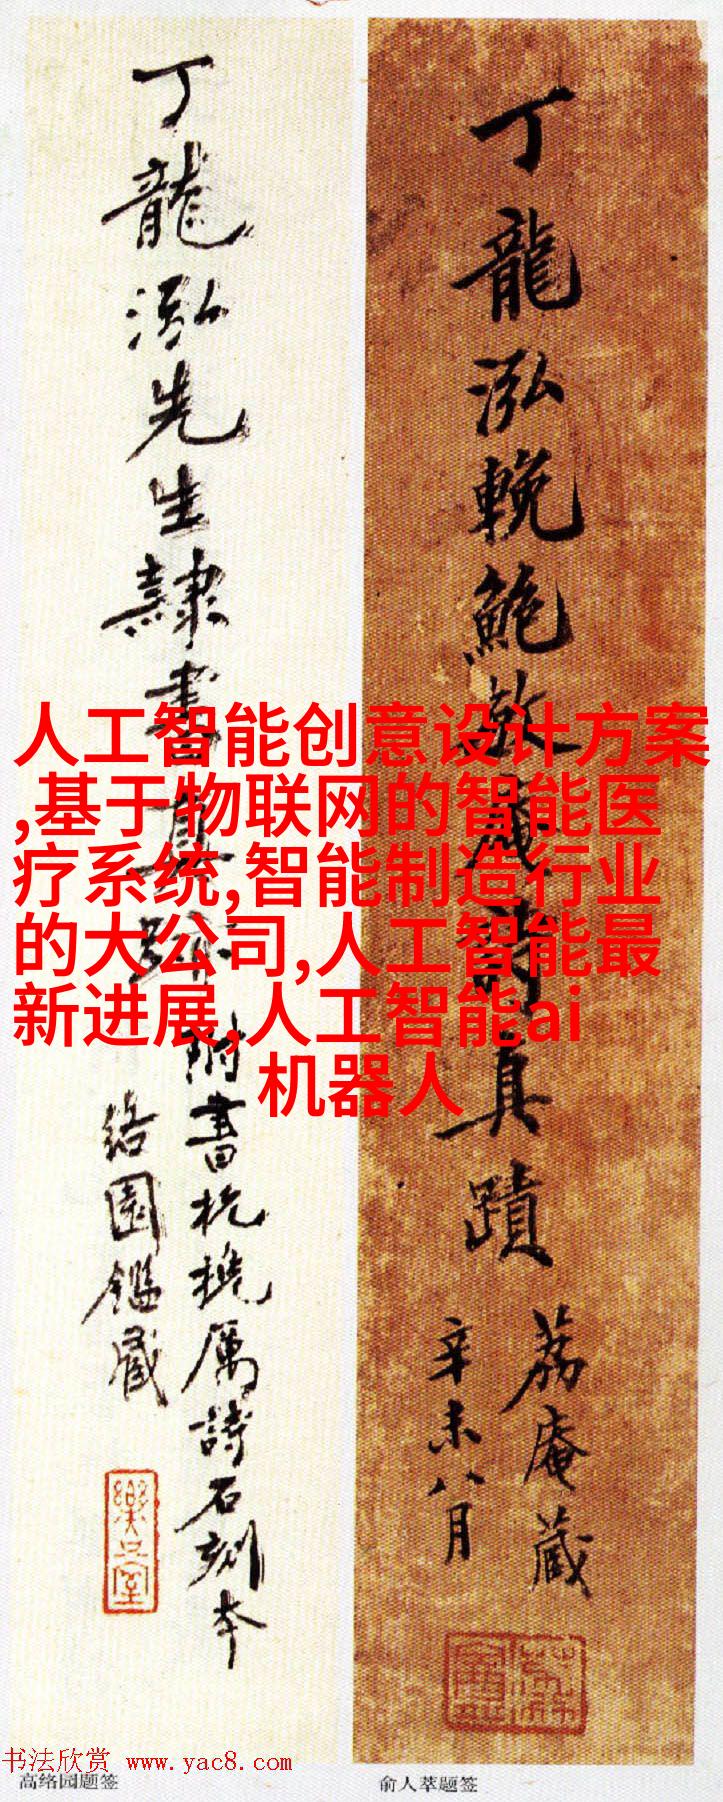 丁龍泓先生隸書真跡
附書杭撓厲詩石刻本
絡園鑑藏
丁龍泓輓鮑敬庵詩真蹟
荔庵藏
辛未八月
人工智能创意设计方案
,基于物联网的智能医
疗系统,智能制造行业
的大公司,人工智能最
新进展,人工智能ai
机器人
书法欣赏 www.yac8.com
高络园题签
俞人萃题签